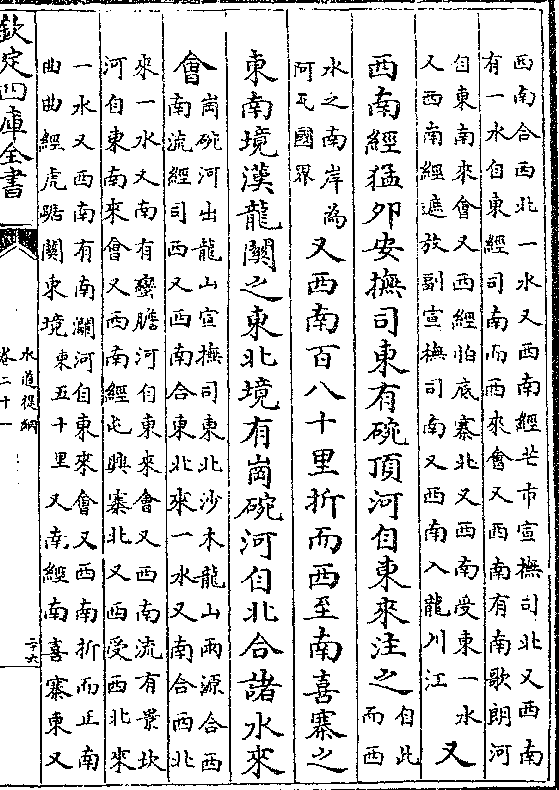 西南合西北一水又西南經芒市宣撫司北又西南
有一水自東經司南而西來會又西南有南歌朗河
自東南來會又西經怕底寨北又西南受東一水
又西南經遮放副宣撫司南又西南入龍川江
又
西南經猛卯安撫司東有碗頂河自東來注之
自此
而西
水之南岸為
阿瓦國界
又西南百八十里折而西至南喜寨之
東南境漢龍關之東北境有崗碗河自北合諸水來
會
崗碗河出龍山宣撫司東北沙木龍山兩源合西
南流經司西又西南合東北來一水又南合西北
來一水又南有蠻膽河自東來會又西南流有景坎
河自東南來會又西南經屯興寨北又西受西北來
一水又西南有南瀾河自東來會又西南折而正南
曲曲經虎踞關東境
東五十里
又南經南喜寨東又
欽定四庫全書
水道提綱
卷二十一
二十六